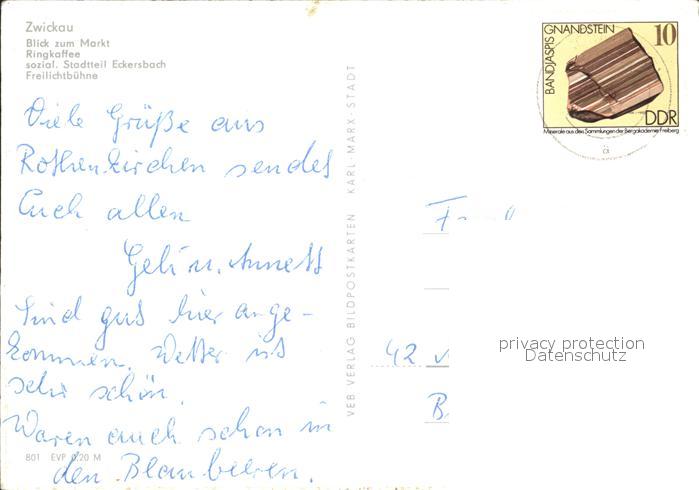 Zwickau
Blick zum Markt
Ringkaffee
sozial. Stadtteil Eckersbach
Freilichtbühne
Viele Grüße aus
Rothenkirchen sendet
Euch allen
Geli u. Annett
Sind gut hier ange-
kommen. Wetter ist
sehr schön.
Waren auch schon in
den Blaubeeren.
801 EVP 0,20 M
VEB VERLAG BILDPOSTKARTEN KARL-MARX-STADT
BANDJASPIS
GNANDSTEIN
10
DDR
Minerale aus den Sammlungen der Bergakademie Freiberg
ä
42
B
privacy protection
Datenschutz